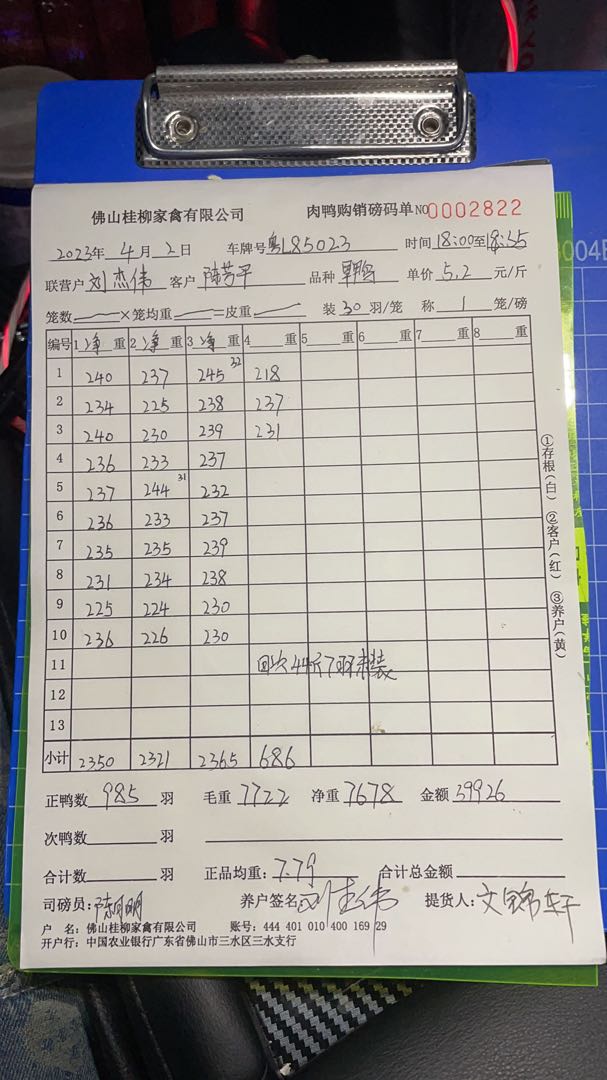 佛山桂柳家禽有限公司 肉鸭购销磅码单 NO 0002822
2023年 4月 2日 车牌号 粤L85023 时间 18:00至18:55
联营户 刘杰伟 客户 陈芳平 品种 单价 5.2 元/斤
笼数 ×笼均重 =皮重 装 30 羽/笼 称 1 笼/磅
编号 1 净 重 2 净 重 3 净 重 4 重 5 重 6 重 7 重 8 重
1 240 237 245 32 218
2 234 225 238 237
3 240 230 239 231
4 236 233 237
5 237 244 31 232
6 236 233 237
7 235 235 239
8 231 234 238
9 225 224 230
10 236 226 230
11 回欠44斤7羽未装
12
13
小计 2350 2321 2365 686
①存根(白) ②客户(红) ③养户(黄)
正鸭数 985 羽 毛重 7722 净重 7678 金额 39926
次鸭数 羽
合计数 羽 正品均重: 7.79 合计总金额
司磅员: 陈明明 养户签名: 刘杰伟 提货人: 文锦轩
户 名: 佛山桂柳家禽有限公司 账号: 444 401 010 400 169 29
开户行: 中国农业银行广东省佛山市三水区三水支行
004